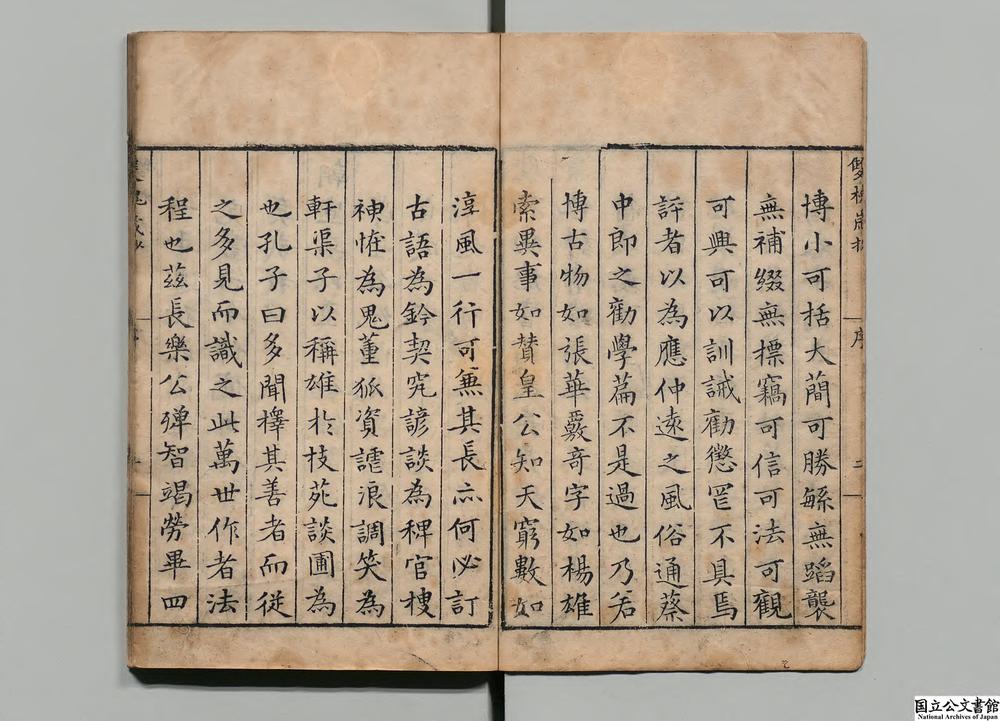 博小可括大蕳可勝緐無蹈襲
無補綴無標竊可信可法可觀
可興可以訓誡勸懲罔不具焉
評者以為應仲遠之風俗通蔡
中郎之勸學篇不是過也乃若
博古物如張華覈奇字如楊雄
索異事如贊皇公知天窮數如
淳風一行可兼其長亦何必訂
古語為鈐契究諺談為稗官搜
神恠為鬼董狐資謔浪調笑為
軒渠子以稱雄於枝苑談圃為
也孔子曰多聞擇其善者而從
之多見而識之此萬世作者法
程也茲長樂公殫智竭勞畢四
序
二
国立公文書館
National Archives of Japan